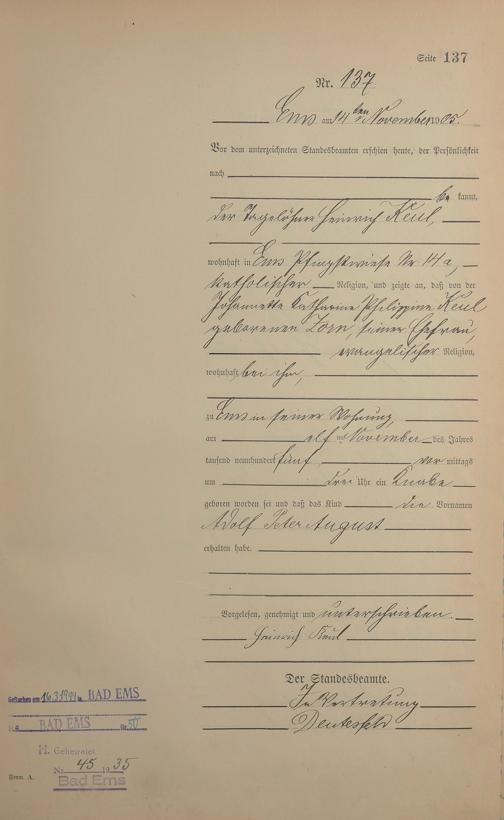 Seite 137
Nr. 137
Ems am 14ten November 1905.
Vor dem unterzeichneten Standesbeamten erschien heute, der Persönlichkeit
nach
be kannt,
der Tagelöhner Heinrich Keul,
wohnhaft in Ems Pfingstwiese Nr. 14a,
katholischer Religion, und zeigte an, daß von der
Johannette Katharine Philippine Keul
geborenen Zorn, seiner Ehefrau,
evangelischer Religion,
wohnhaft bei ihm,
zu Ems in seiner Wohnung,
am elften November des Jahres
tausend neunhundert fünf vor mittags
um drei Uhr ein Knabe
geboren worden sei und daß das Kind die Vornamen
Adolf Peter August
erhalten habe.
Vorgelesen, genehmigt und unterschrieben.
Heinrich Keul
Der Standesbeamte.
In Vertretung
Gestorben am 16.3.1994 in BAD EMS
BAD EMS Nr. 50
H. Geheiratet
Nr. 45 1935
Bad Ems
Form. A.